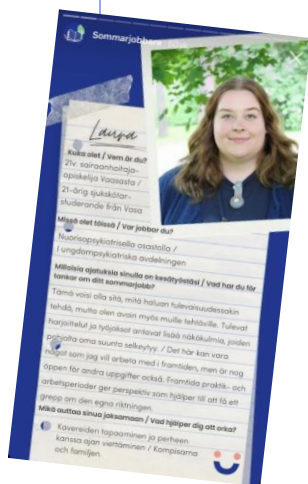 Sommarjobbare
Laura
Kuka olet / Vem är du?
21v. sairaanhoitaja-
opiskelija Vaasasta /
21-årig sjukskötar-
studerande från Vasa
Missä olet töissä / Var jobbar du?
Nuorisopsykiatrisella osastolla /
I ungdomspsykiatriska avdelningen
Millaisia ajatuksia sinulla on kesätyöstäsi / Vad har du för
tankar om ditt sommarjobb?
Tämä voisi olla sitä, mitä haluan tulevaisuudessakin
tehdä, mutta olen avoin myös muille tehtäville. Tulevat
harjoittelut ja työjaksot antavat lisää näkökulmia, joiden
pohjalta oma suunta selkeytyy. / Det här kan vara
något som jag vill arbeta med i framtiden, men är nog
öppen för andra uppgifter också. Framtida praktik- och
arbetsperioder ger perspektiv som hjälper till att få ett
grepp om den egna riktningen.
Mikä auttaa sinua jaksamaan / Vad hjälper dig att orka?
Kavereiden tapaaminen ja perheen
kanssa ajan viettäminen / Kompisarna
och familjen.